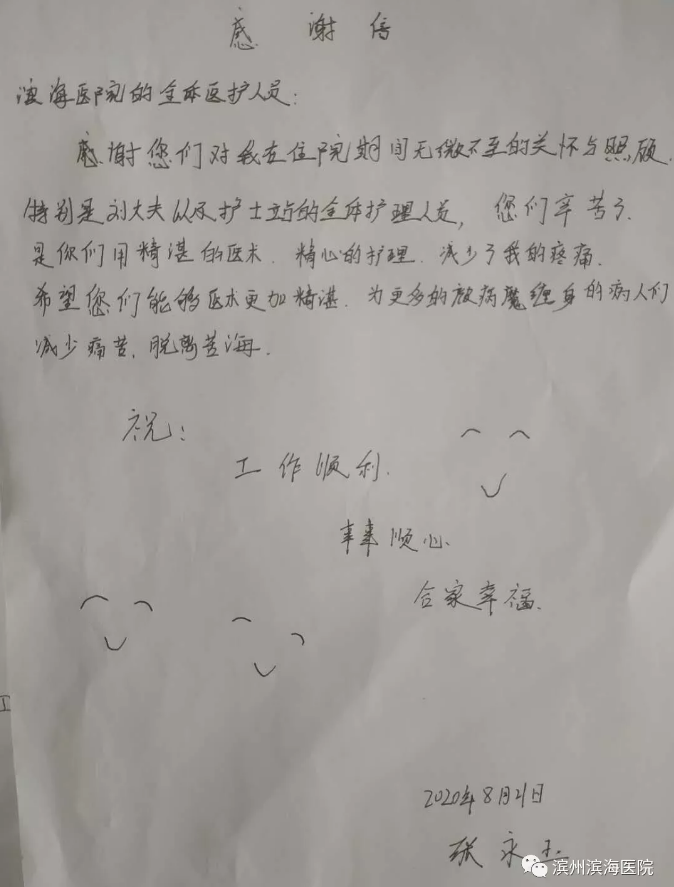 感谢信
滨海医院的全体医护人员：
感谢您们对我在住院期间无微不至的关怀与照顾.
特别是刘大夫以及护士站的全体护理人员，您们辛苦了.
是你们用精湛的医术.精心的护理.减少了我的疼痛.
希望您们能够医术更加精湛.为更多的被病魔缠身的病人们
减少痛苦.脱离苦海.
祝：
工作顺利.
事事顺心.
合家幸福.
2020年8月21日
张永玉
滨州滨海医院